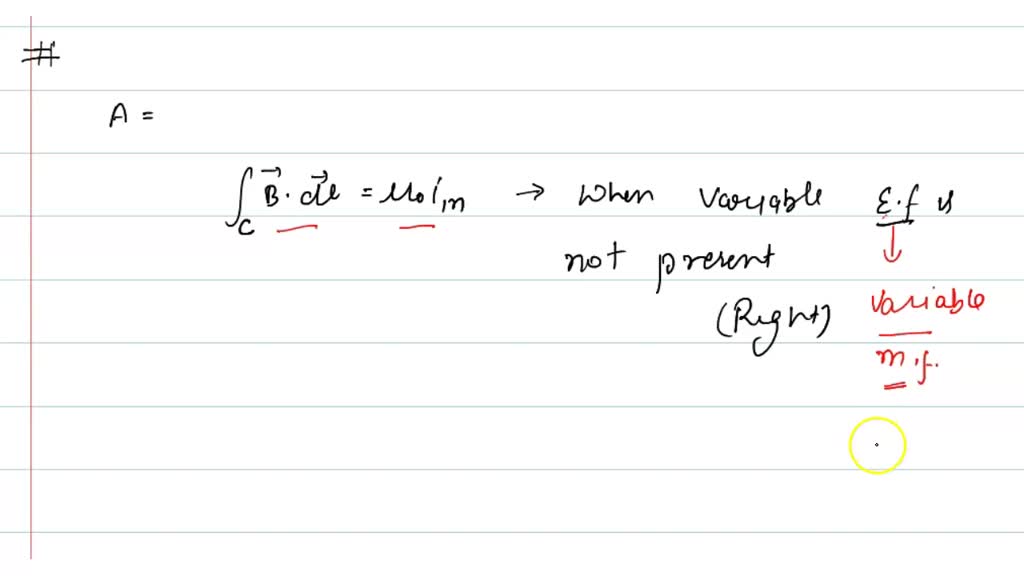 #
A =
∫_C B⃗ · dl⃗ = μ₀ i_in → When variable E.f is
not present variable
(Right) m.f.